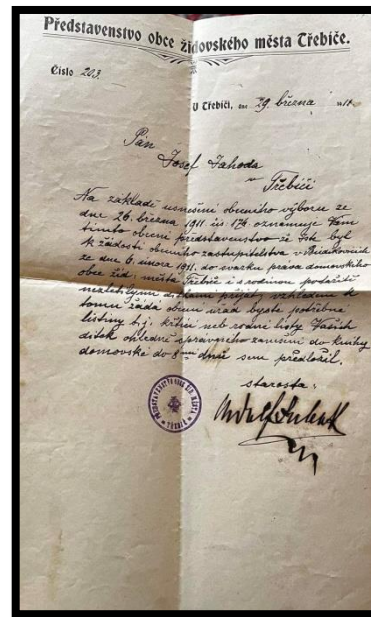 Představenstvo obce židovského města Třebíče.
Číslo 203.
V Třebíči, dne 29. března 1911.
Pán
Josef Jahoda
v
Třebíči
Na základě usnešení obecního výboru ze
dne 26. března 1911 čís 174. oznamuje Vám
tímto obecní představenstvo že jste byl
k žádosti obecního zastupitelstva v Rudíkovicích
ze dne 6. února 1911. do svazku práva domovského
obce žid. města Třebíče i s rodinou
nezletilými dítkami přijat, vzhledem k
tomu žádá obecní úřad byste potřebné
listiny t.j. křtní neb rodné listy Vašich
dítek ohledně správného zanesení do knihy
domovské do 8mi dnů sem předložil.
starosta: